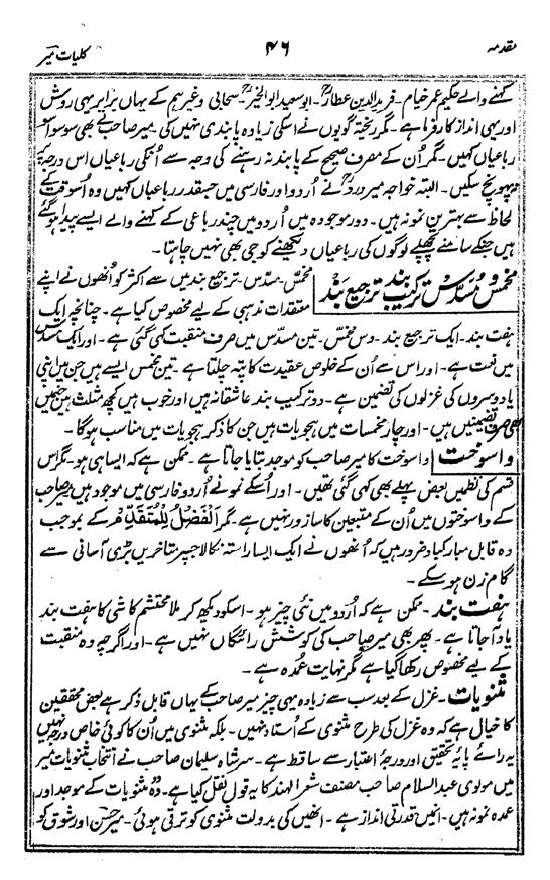 مقدمہ ۴۶ کلیات میر
کہنے والے حکیم عمر خیام ۔ فرید الدین عطارؒ ۔ ابو سعید ابو الخیرؒ ۔ سحابی وغیرہم کے یہاں برابر یہی روش
اور یہی انداز کارفرما ہے ۔ مگر ریختہ گویوں نے اسکی زیادہ پابندی نہیں کی ۔ میر صاحب نے بھی سو سوا سو
رباعیاں کہیں ۔ مگر اُن کے مصرف صحیح کے پابند نہ رہنے کی وجہ سے اُنکی رباعیاں اس درجہ کو
نہ پہونچ سکیں ۔ البتہ خواجہ میر دردؒ نے اُردو اور فارسی میں جسقدر رباعیاں کہیں وہ اُسوقت کے
لحاظ سے بہترین نمونہ ہیں ۔ دور موجودہ میں اُردو میں چند رباعی کے کہنے والے ایسے پیدا ہو گئے
ہیں جنکے سامنے پچھلے لوگوں کی رباعیاں دیکھنے کو جی بھی نہیں چاہتا ۔
مخمس و مسدس ترکیب بند ترجیع بند مخمس ۔ مسدس ۔ ترجیع بند میں سے اکثر کو اُنھوں نے اپنے
معتقدات مذہبی کے لیے مخصوص کیا ہے ۔ چنانچہ ایک
ہفت بند ۔ ایک ترجیع بند ۔ دس مخمس ۔ تین مسدس میں صرف منقبت کہی گئی ہے ۔ اور ایک مسدس
میں نعت ہے ۔ اور اس سے اُن کے خلوص عقیدت کا پتہ چلتا ہے ۔ تین مخمس ایسے ہیں جن میں اپنی
یا دوسروں کی غزلوں کی تضمین ہے ۔ دو ترکیب بند عاشقانہ ہیں اور خوب ہیں کچھ مثلث ہیں جنمیں
بھی صرف تضمینیں ہیں ۔ اور چار مخمسات میں ہجویات ہیں جن کا ذکر ہجویات میں مناسب ہوگا ۔
واسوخت واسوخت کا میر صاحب کو موجد بتایا جاتا ہے ۔ ممکن ہے کہ ایسا ہی ہو ۔ مگر اس
قسم کی نظمیں بعض پہلے بھی کہی گئی تھیں ۔ اور اُسکے نمونے اُردو فارسی میں موجود ہیں میر صاحب
کے واسوختوں میں اُن کے متبعین کا سا زور نہیں ہے ۔ مگر اَلفَضلُ لِلمُتَقَدِّم کے بموجب
وہ قابل مبارکباد ضرور ہیں کہ اُنھوں نے ایک ایسا راستہ نکالا جسپر متاخرین بڑی آسانی سے
گام زن ہو سکے ۔
ہفت بند ۔ ممکن ہے کہ اُردو میں نئی چیز ہو ۔ اسکو دیکھ کر ملا محتشم کاشی کا ہفت بند
یاد آ جاتا ہے ۔ پھر بھی میر صاحب کی کوشش رائگاں نہیں ہے ۔ اور اگرچہ وہ منقبت
کے لیے مخصوص رکھا گیا ہے مگر نہایت عمدہ ہے ۔
مثنویات ۔ غزل کے بعد سب سے زیادہ یہی چیز میر صاحب کے یہاں قابل ذکر ہے بعض محققین
کا خیال ہے کہ وہ غزل کی طرح مثنوی کے اُستاد نہیں ۔ بلکہ مثنوی میں اُن کا کوئی خاص درجہ نہیں
یہ رائے پایۂ تحقیق اور درجۂ اعتبار سے ساقط ہے ۔ سر شاہ سلیمان صاحب نے انتخاب مثنویات میر
میں مولوی عبد السلام صاحب مصنف شعر الہند کا یہ قول نقل کیا ہے ۔ وہ مثنویات کے موجد اور
عمدہ نمونہ ہیں ۔ انمیں قدرتی انداز ہے ۔ انھیں کی بدولت مثنوی کو ترقی ہوئی ۔ میر حسن اور شوق کو